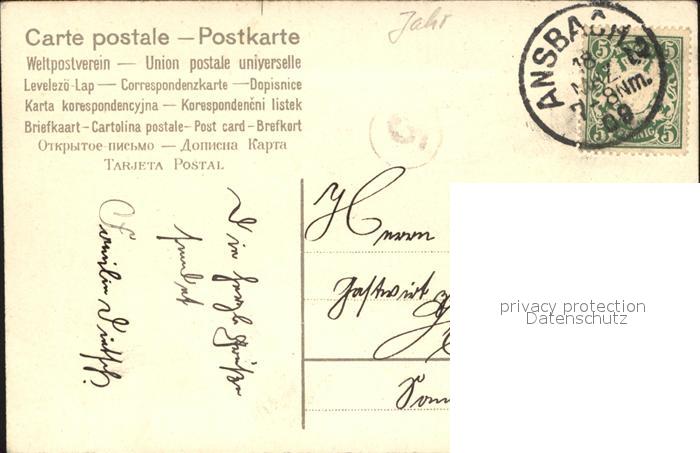 Carte postale — Postkarte
Weltpostverein — Union postale universelle
Levelező-Lap — Correspondenzkarte — Dopisnice
Karta korespondencyjna — Korespondenční listek
Briefkaart - Cartolina postale - Post card - Brefkort
Открытое письмо — Дописна Карта
TARJETA POSTAL
Jahr
ANSBACH
18
8Nm.
09
5 5
5 5
Herrn
Gastwirt
Die herzl. Grüße
sendet
Familie
privacy protection
Datenschutz